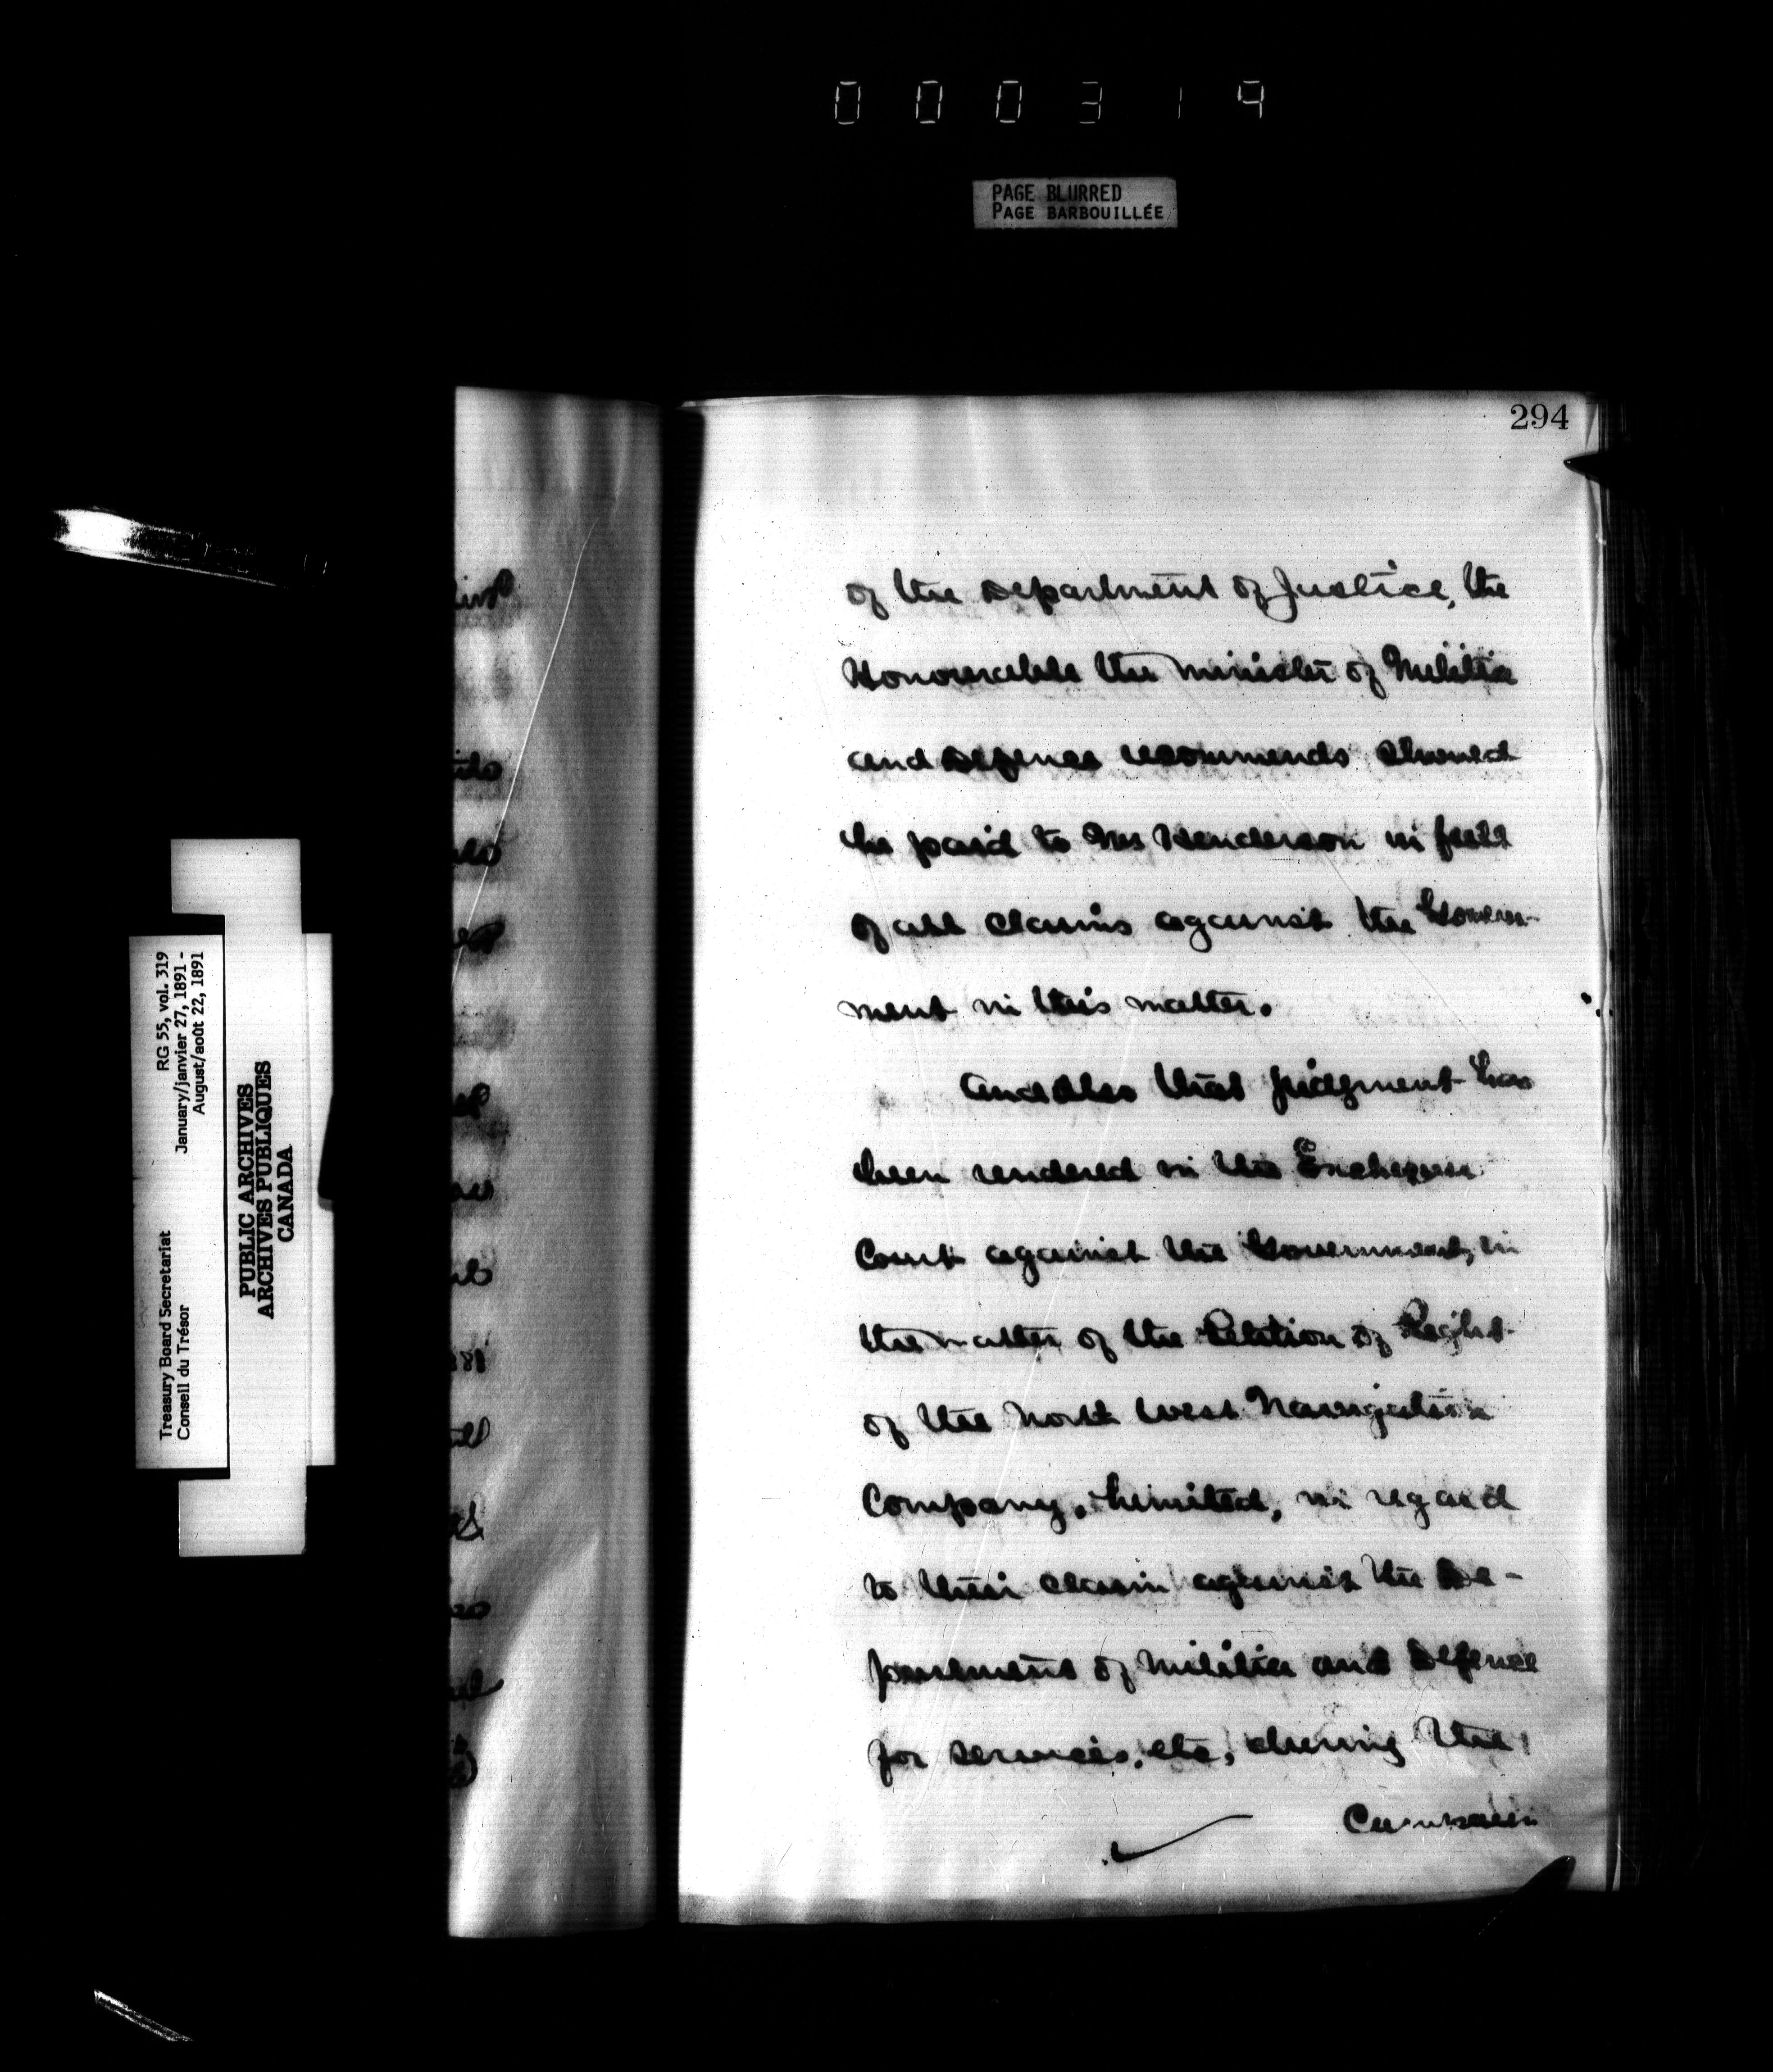 000319
PAGE BLURRED
PAGE BARBOUILLÉE
294
of the Department of Justice, the
Honourable the Minister of Militia
and Defence recommends should
be paid to Mr Henderson in full
of all claims against the Govern-
ment in this matter.
And Also that judgment has
been rendered in the Exchequer
Court against the Government, in
the matter of the Petition of Right
of the North West Navigation
Company, Limited, in regard
to their claim against the De-
partment of Militia and Defence
for services, etc, during the
RG 55, vol. 319
January/janvier 27, 1891 -
August/août 22, 1891
Treasury Board Secretariat
Conseil du Trésor
PUBLIC ARCHIVES
ARCHIVES PUBLIQUES
CANADA